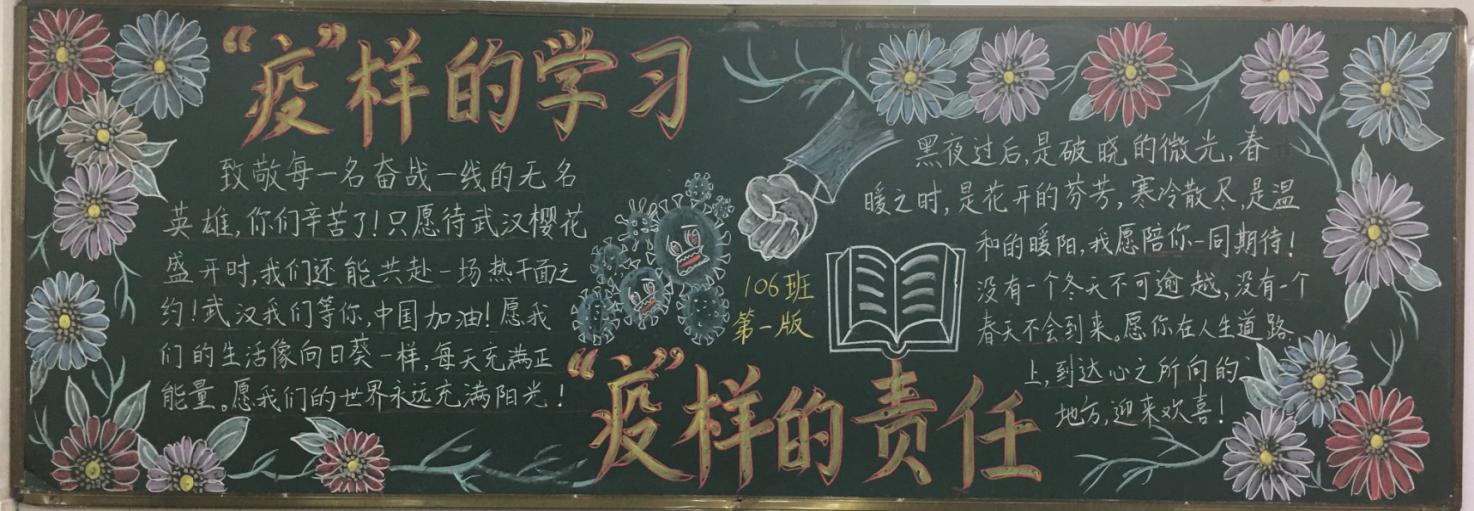 “疫”样的学习
致敬每一名奋战一线的无名
英雄,你们辛苦了!只愿待武汉樱花
盛开时,我们还能共赴一场热干面之
约!武汉我们等你,中国加油!愿我
们的生活像向日葵一样,每天充满正
能量。愿我们的世界永远充满阳光!
106班
第一版
“疫”样的责任
黑夜过后,是破晓的微光,春
暖之时,是花开的芬芳,寒冷散尽,是温
和的暖阳,我愿陪你一同期待!
没有一个冬天不可逾越,没有一个
春天不会到来。愿你在人生道路
上,到达心之所向的
地方,迎来欢喜!